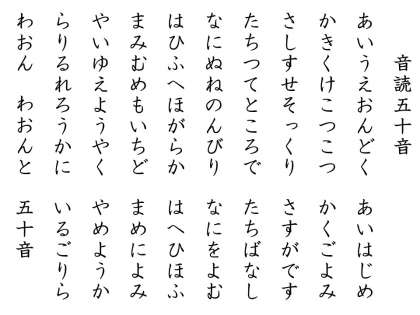 音読五十音
あいうえおんどく　あいはじめ
かきくけこつこつ　かくごよみ
さしすせそっくり　さすがです
たちつてところで　たちばなし
なにぬねのんびり　なにをよむ
はひふへほがらか　はへひほふ
まみむめもいちど　まめによみ
やいゆえようやく　やめようか
らりるれろうかに　いるごりら
わおん　わおんと　五十音